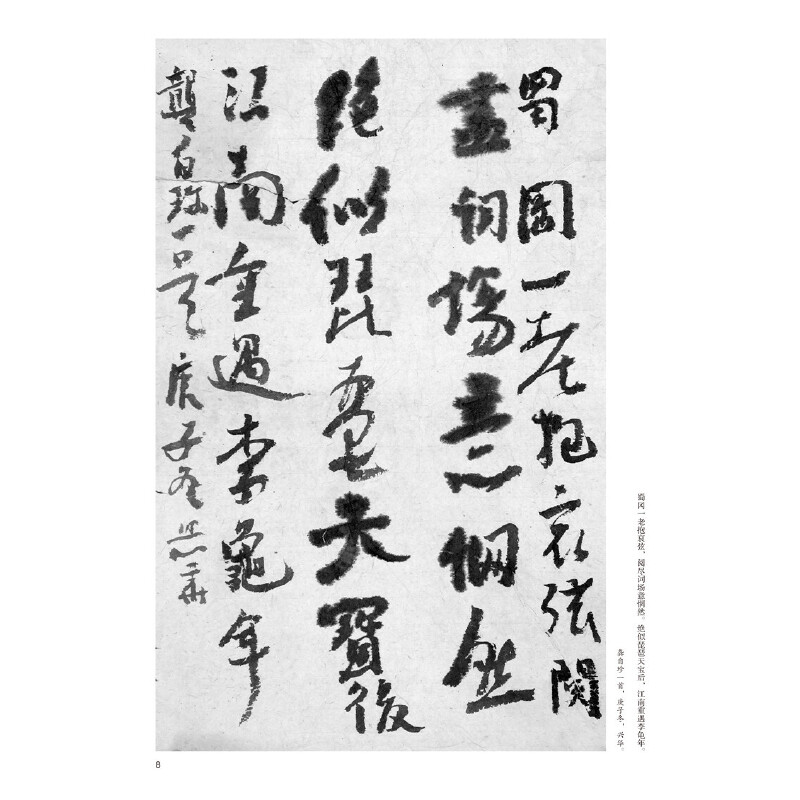 蜀岡一老抱哀弦閱
盡詞場意惘然
絕似琵琶天寶後
江南重遇李龜年
龔自珍一首 庚子冬 興華
蜀冈一老抱哀弦，阅尽词场意惘然。绝似琵琶天宝后，江南重遇李龟年。
龚自珍一首，庚子冬，兴华。
8